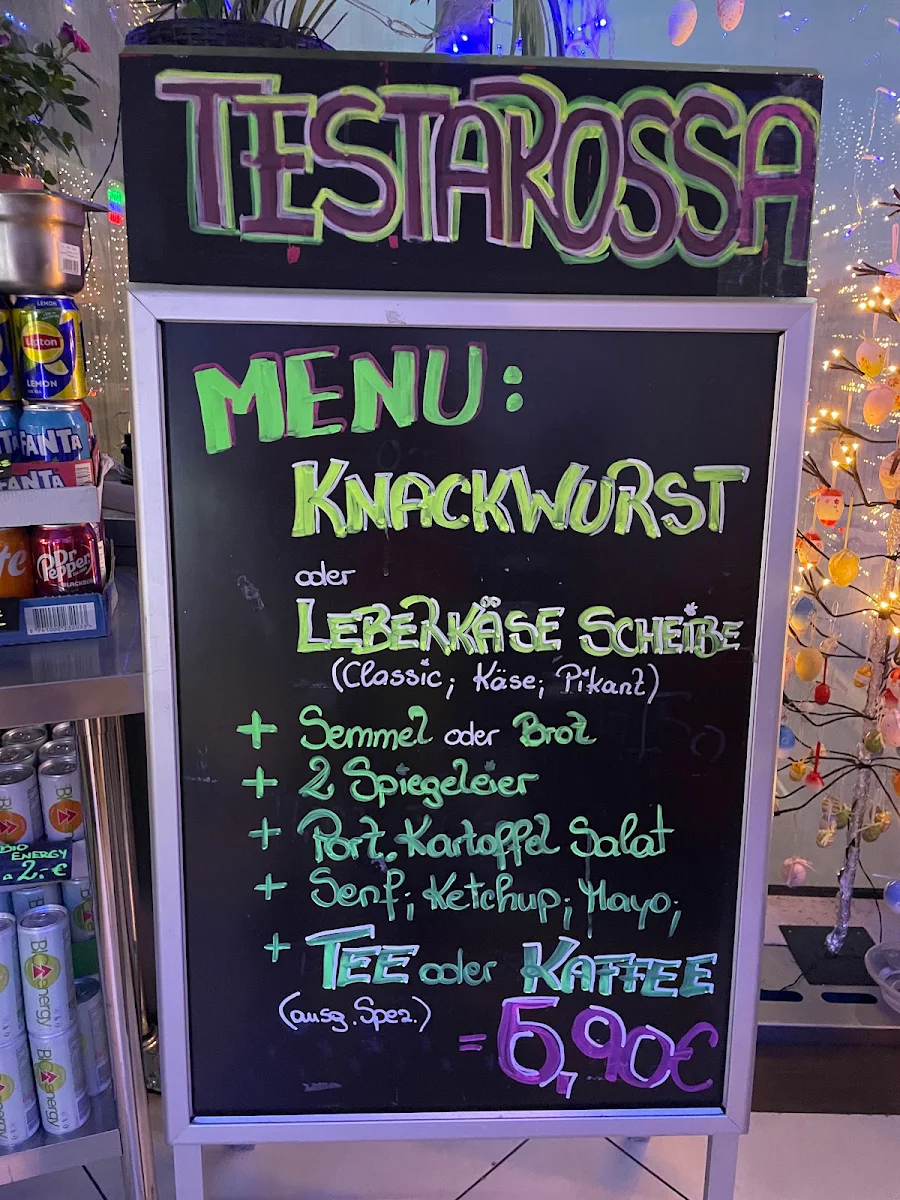 TESTAROSSA
MENU:
KNACKWURST
oder
LEBERKÄSE SCHEIBE
(Classic; Käse; Pikant)
+ Semmel oder Brot
+ 2 Spiegeleier
+ Port. Kartoffel Salat
+ Senf; Ketchup; Mayo;
+ TEE oder KAFFEE
(ausg. Spez.)
= 5,90€
LEMON
Lipton
LEMON
FANTA
FANTA
Dr Pepper
BIO
ENERGY
a 2.-€
BIO energy
BIO energy